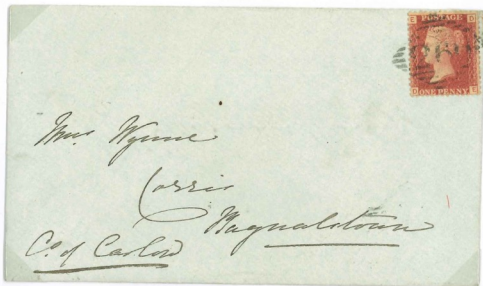 E D
POSTAGE
D E
ONE PENNY
Mrs. Wynne
Corries
Bagnalstown
Co. of Carlow